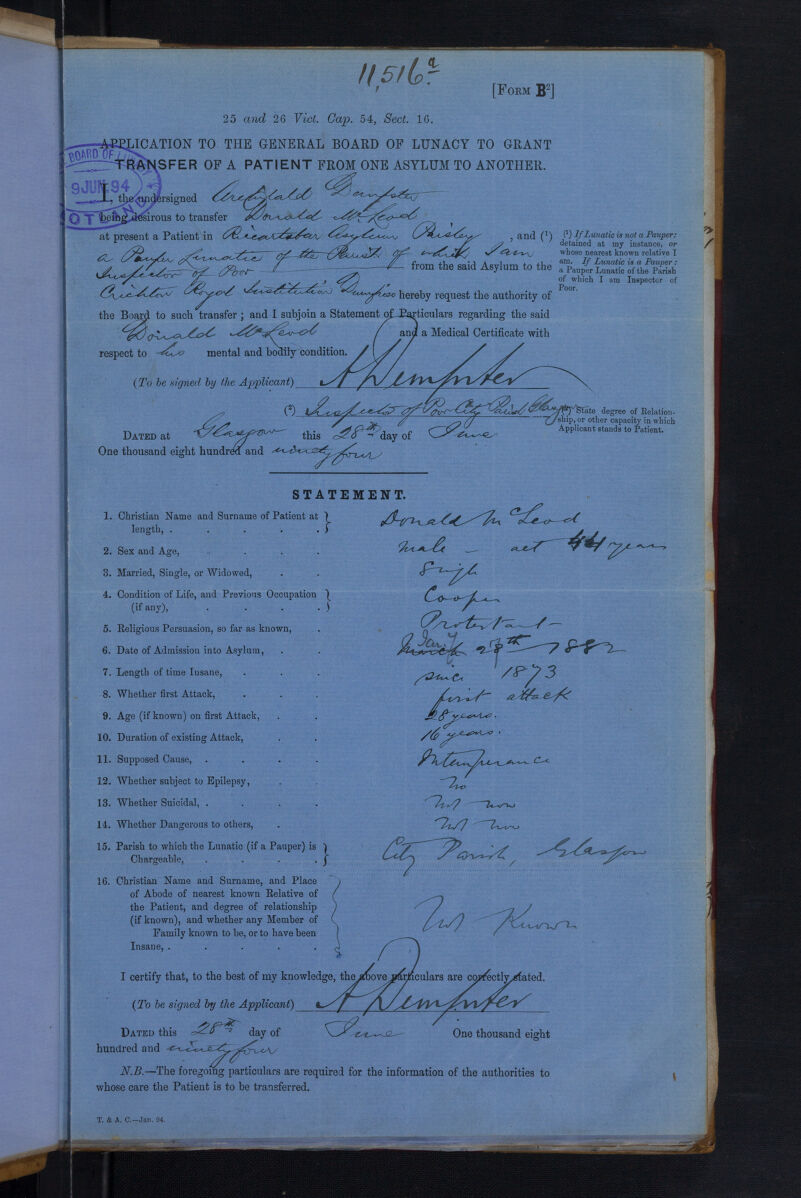 11,516a
[FORM B2]
25 and 26 Vict. Cap. 54, Sect. 16.
APPLICATION TO THE GENERAL BOARD OF LUNACY TO GRANT
TRANSFER OF A PATIENT FROM ONE ASYLUM TO ANOTHER.
BOARD OF LUNACY
9 JUN 94
SCOTLAND
I, the undersigned Archibald Dempster
being desirous to transfer Donald McLeod
at present a Patient in Riccartsbar Asylum Paisley, and (1)
a Pauper Lunatic of the Parish of which I am
Inspector of Poor from the said Asylum to the
Crichton Royal Institution Dumfries hereby request the authority of
the Board to such transfer; and I subjoin a Statement of Particulars regarding the said
Donald McLeod and a Medical Certificate with
respect to his mental and bodily condition.
(1) If Lunatic is not a Pauper:
detained at my instance, or
whose nearest known relative I
am. If Lunatic is a Pauper:
a Pauper Lunatic of the Parish
of which I am Inspector of
Poor.
(To be signed by the Applicant) A Dempster
(2) Inspector of Poor City Parish Glasgow
(2) State degree of Relation-
ship, or other capacity in which
Applicant stands to Patient.
DATED at Glasgow this 28th day of June
One thousand eight hundred and ninety four
STATEMENT.
1. Christian Name and Surname of Patient at
length, . . . . . Donald McLeod
2. Sex and Age, . . . Male - aet 44 years
3. Married, Single, or Widowed, . . Single
4. Condition of Life, and Previous Occupation
(if any), . . . . Cooper
5. Religious Persuasion, so far as known, . Protestant
6. Date of Admission into Asylum, . . March Jany 28th 1882
7. Length of time Insane, . . . since 1873
8. Whether first Attack, . . . first attack
9. Age (if known) on first Attack, . . 28 years.
10. Duration of existing Attack, . . 16 years.
11. Supposed Cause, . . . . Intemperance
12. Whether subject to Epilepsy, . . No
13. Whether Suicidal, . . . . Not now
14. Whether Dangerous to others, . . Not now
15. Parish to which the Lunatic (if a Pauper) is
Chargeable, . . . . City Parish, Glasgow
16. Christian Name and Surname, and Place
of Abode of nearest known Relative of
the Patient, and degree of relationship
(if known), and whether any Member of
Family known to be, or to have been
Insane, . . . . . Not Known
I certify that, to the best of my knowledge, the above particulars are correctly stated.
(To be signed by the Applicant) A Dempster
DATED this 28th day of June One thousand eight
hundred and ninety four
N.B.—The foregoing particulars are required for the information of the authorities to
whose care the Patient is to be transferred.
T. & A. C.—Jan. 94.